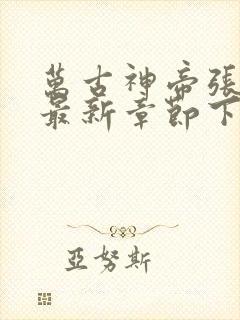 萬古神帝張
最新章節下
亞努斯